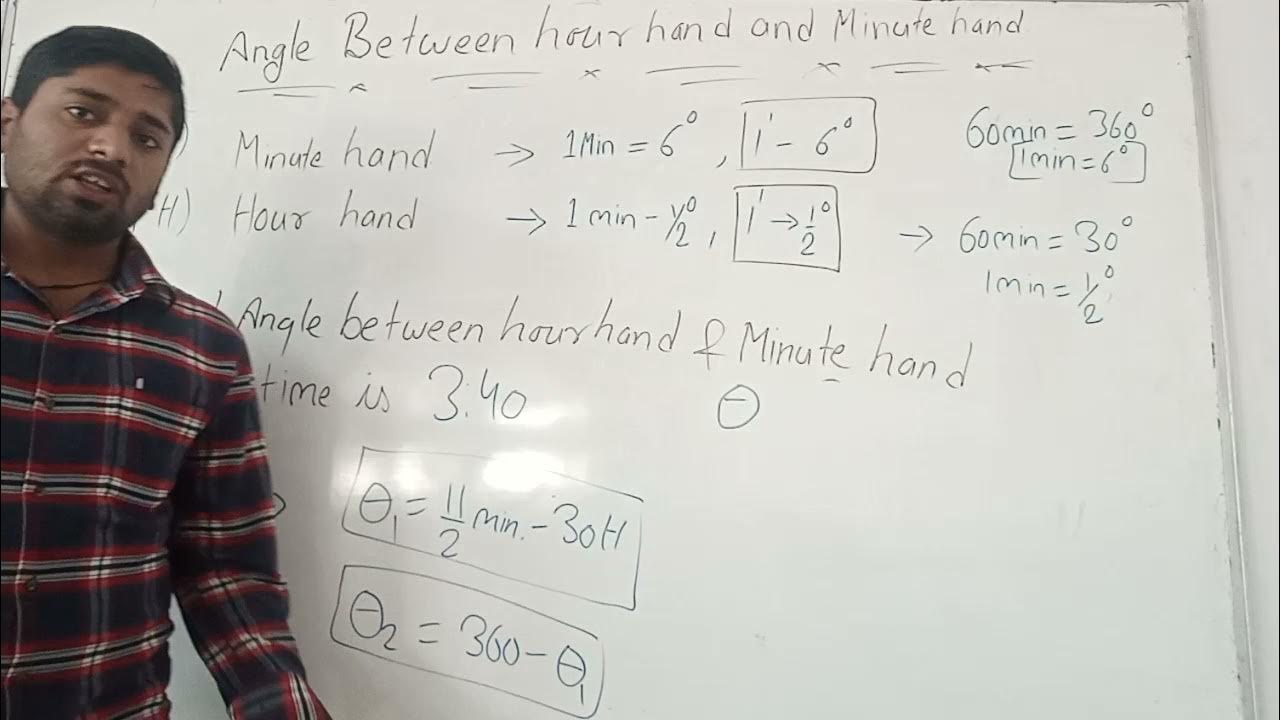 Angle Between hour hand and Minute hand
) Minute hand → 1Min = 6°, 1' - 6°
60min = 360°
1min = 6°
H) Hour hand → 1min - 1/2°, 1' → 1/2° → 60min = 30°
1min = 1/2°
Angle between hour hand & Minute hand
time is 3:40 θ
θ₁ = 11/2 min. - 30H
θ₂ = 360 - θ₁